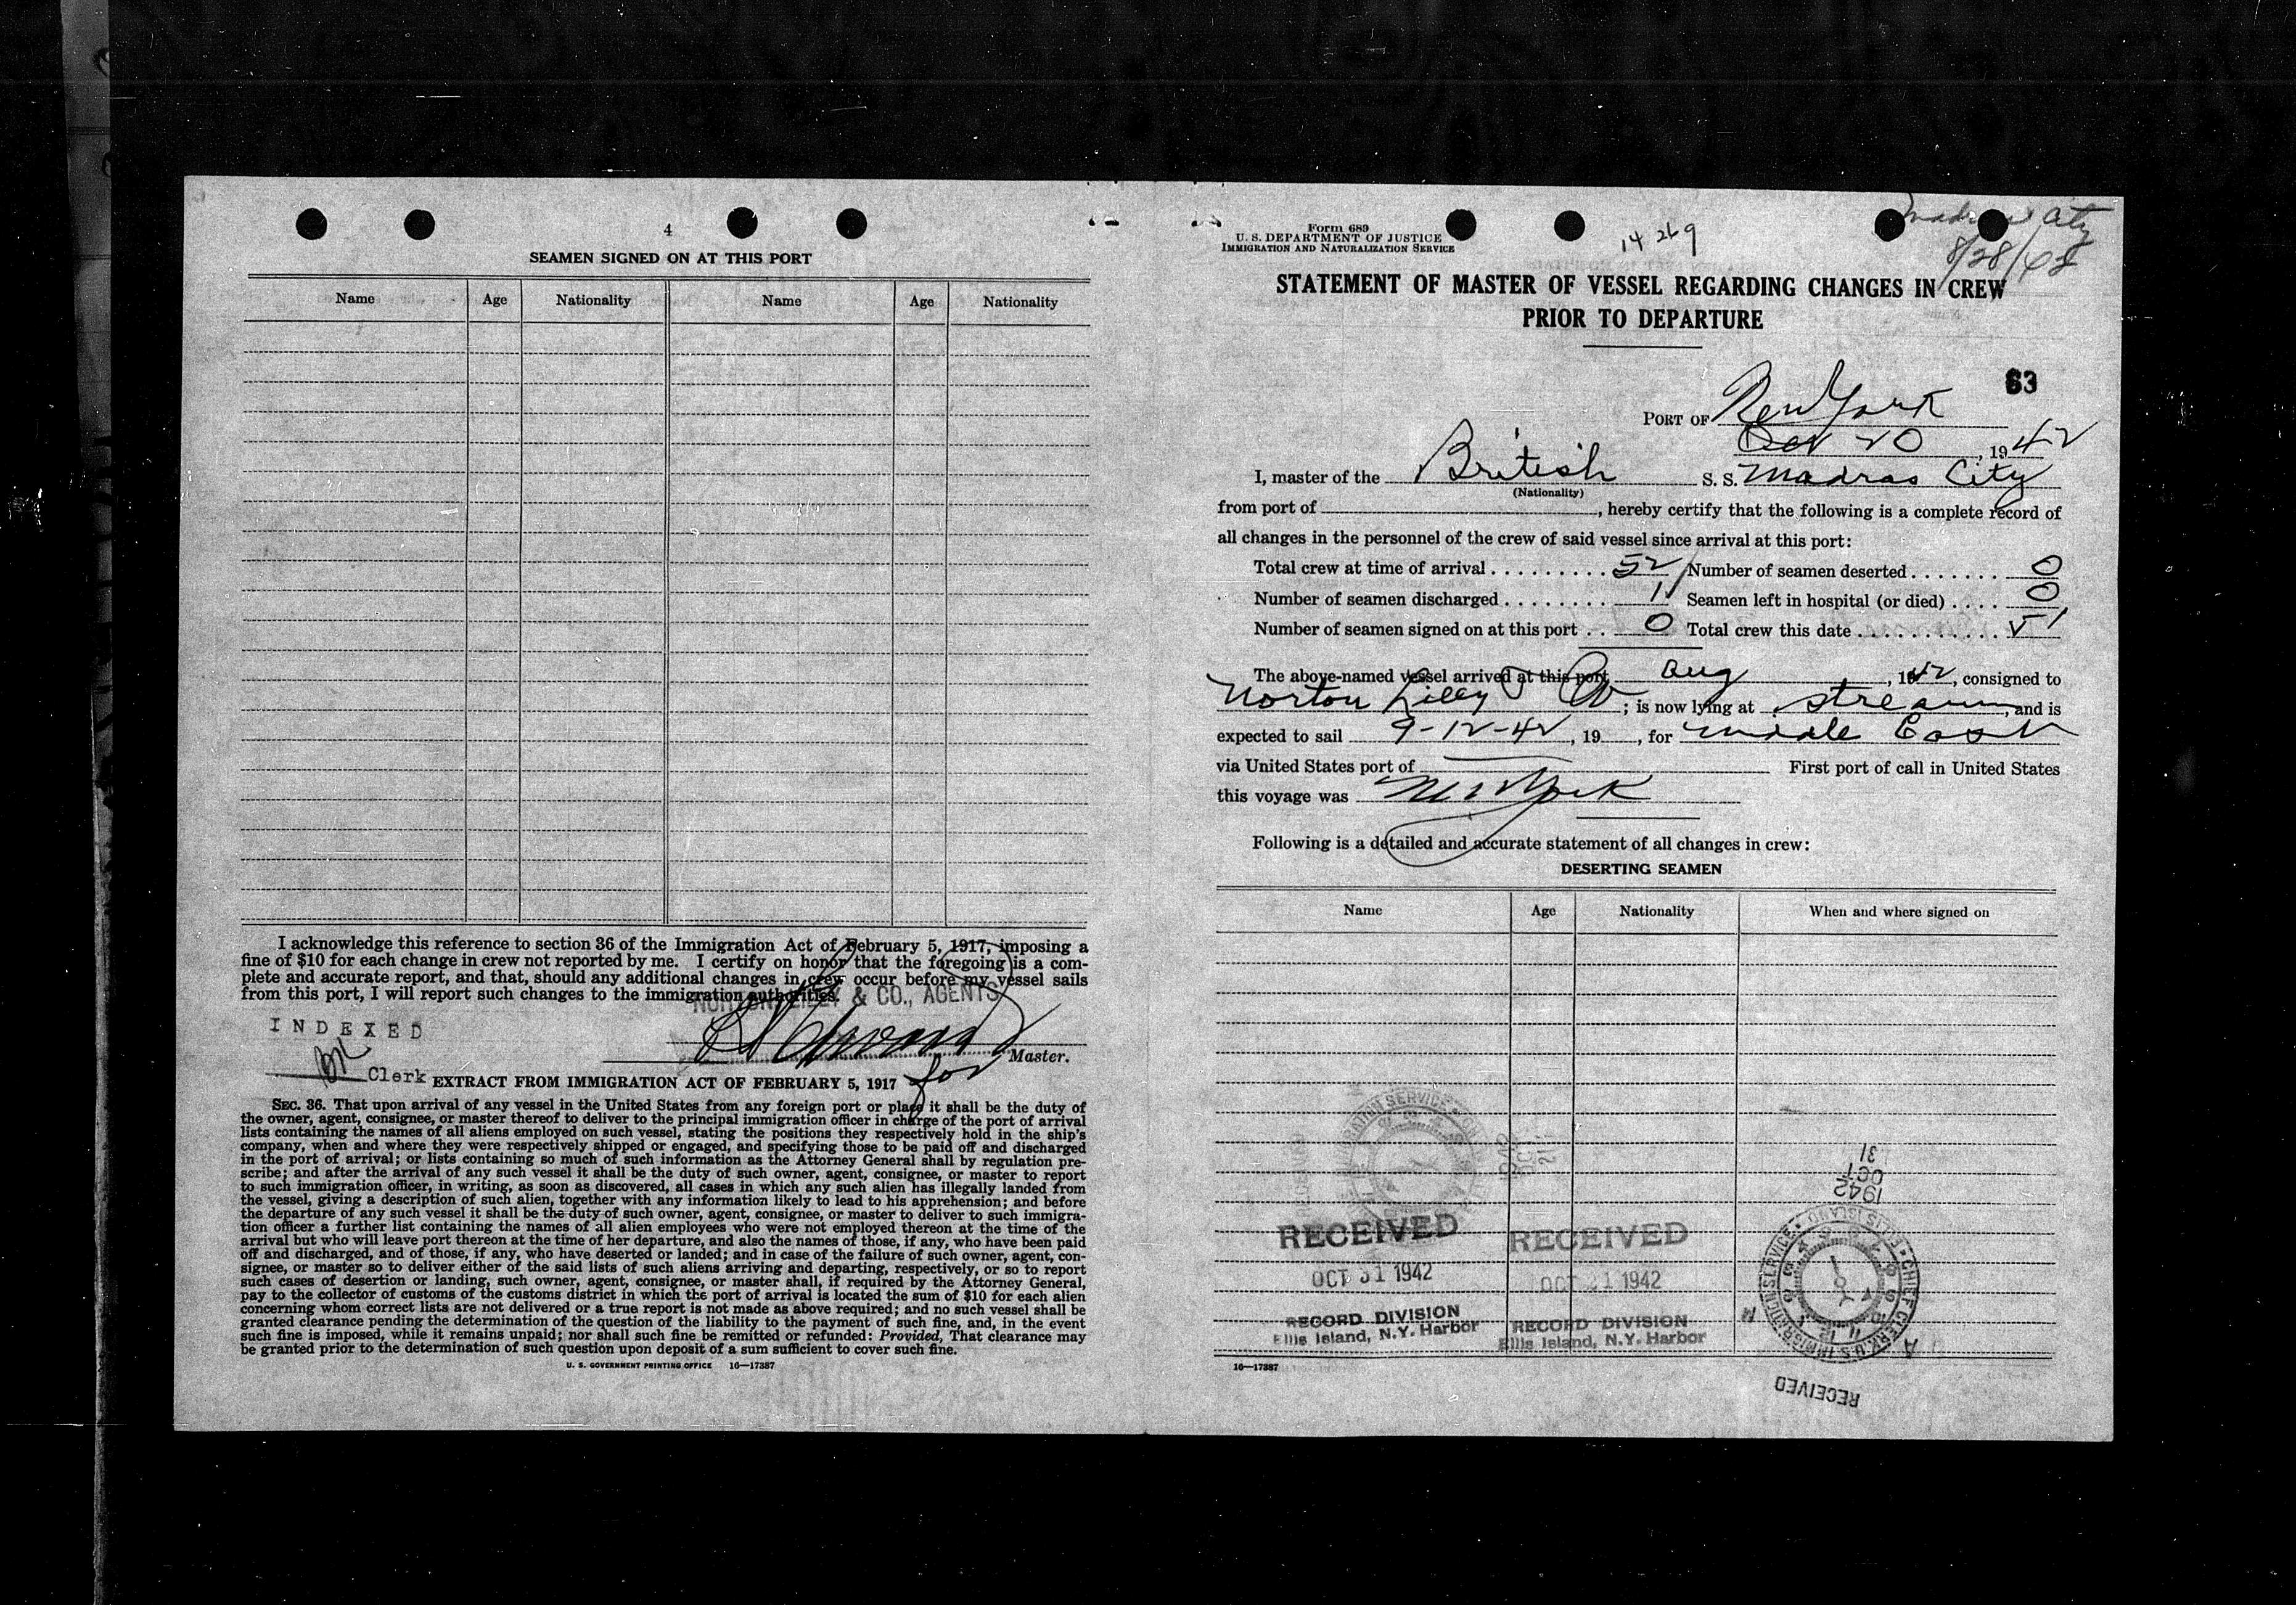 4
SEAMEN SIGNED ON AT THIS PORT
Name Age Nationality Name Age Nationality
I acknowledge this reference to section 36 of the Immigration Act of February 5, 1917, imposing a
fine of $10 for each change in crew not reported by me. I certify on honor that the foregoing is a com-
plete and accurate report, and that, should any additional changes in crew occur before my vessel sails
from this port, I will report such changes to the immigration authorities.
NORTON LILLY & CO., AGENTS
INDEXED
Master.
for
Clerk
EXTRACT FROM IMMIGRATION ACT OF FEBRUARY 5, 1917
SEC. 36. That upon arrival of any vessel in the United States from any foreign port or place it shall be the duty of
the owner, agent, consignee, or master thereof to deliver to the principal immigration officer in charge of the port of arrival
lists containing the names of all aliens employed on such vessel, stating the positions they respectively hold in the ship's
company, when and where they were respectively shipped or engaged, and specifying those to be paid off and discharged
in the port of arrival; or lists containing so much of such information as the Attorney General shall by regulation pre-
scribe; and after the arrival of any such vessel it shall be the duty of such owner, agent, consignee, or master to report
to such immigration officer, in writing, as soon as discovered, all cases in which any such alien has illegally landed from
the vessel, giving a description of such alien, together with any information likely to lead to his apprehension; and before
the departure of any such vessel it shall be the duty of such owner, agent, consignee, or master to deliver to such immigra-
tion officer a further list containing the names of all alien employees who were not employed thereon at the time of the
arrival but who will leave port thereon at the time of her departure, and also the names of those, if any, who have been paid
off and discharged, and of those, if any, who have deserted or landed; and in case of the failure of such owner, agent, con-
signee, or master so to deliver either of the said lists of such aliens arriving and departing, respectively, or so to report
such cases of desertion or landing, such owner, agent, consignee, or master shall, if required by the Attorney General,
pay to the collector of customs of the customs district in which the port of arrival is located the sum of $10 for each alien
concerning whom correct lists are not delivered or a true report is not made as above required; and no such vessel shall be
granted clearance pending the determination of the question of the liability to the payment of such fine, and, in the event
such fine is imposed, while it remains unpaid; nor shall such fine be remitted or refunded: Provided, That clearance may
be granted prior to the determination of such question upon deposit of a sum sufficient to cover such fine.
U. S. GOVERNMENT PRINTING OFFICE 16—17387
Form 689
U. S. DEPARTMENT OF JUSTICE
IMMIGRATION AND NATURALIZATION SERVICE
14269
Madras City
8/28/42
STATEMENT OF MASTER OF VESSEL REGARDING CHANGES IN CREW
PRIOR TO DEPARTURE
63
PORT OF New York
Oct 20, 1942
I, master of the British S. S. Madras City
(Nationality)
from port of , hereby certify that the following is a complete record of
all changes in the personnel of the crew of said vessel since arrival at this port:
Total crew at time of arrival . . . . . . . . . 52 Number of seamen deserted . . . . . . . 0
Number of seamen discharged . . . . . . . . 1 Seamen left in hospital (or died) . . . . 0
Number of seamen signed on at this port . . 0 Total crew this date . . . . . . . . . . . 51
The above-named vessel arrived at this port Aug , 1942, consigned to
Norton Lilly & Co ; is now lying at stream, and is
expected to sail 9-12-42, 19 , for Middle East
via United States port of — First port of call in United States
this voyage was New York
Following is a detailed and accurate statement of all changes in crew:
DESERTING SEAMEN
Name Age Nationality When and where signed on
1942
OCT
31
RECEIVED
OCT 31 1942
RECORD DIVISION
Ellis Island, N.Y. Harbor
RECEIVED
OCT 21 1942
RECORD DIVISION
Ellis Island, N.Y. Harbor
CHIEF CLERK U.S. IMMIGRATION SERVICE • ELLIS ISLAND
RECEIVED
16—17387